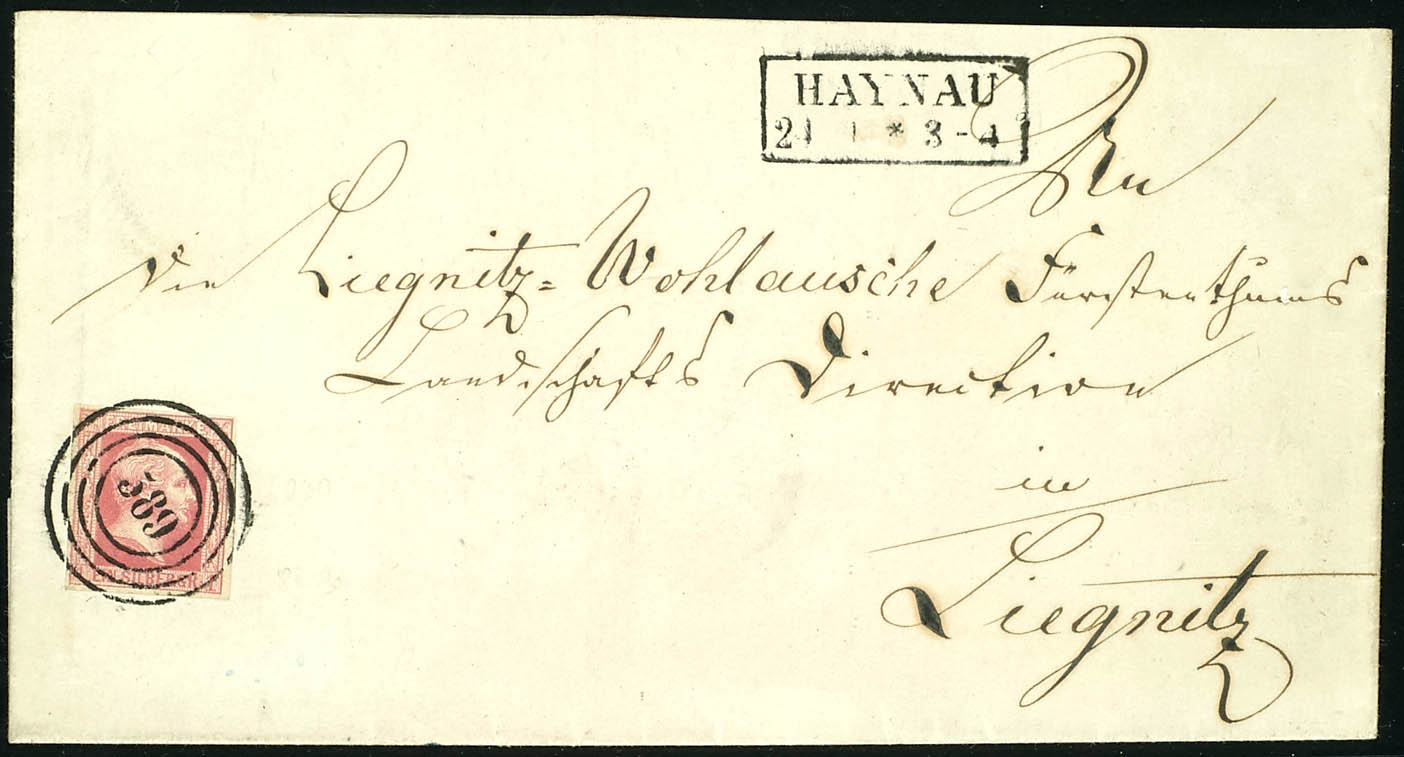 HAYNAU
21 1 * 3-4
An
die Liegnitz=Wohlausche Fürstenthums
Landschafts Direction
in
Liegnitz
FREIMARKE
589
EIN SILBERGR.